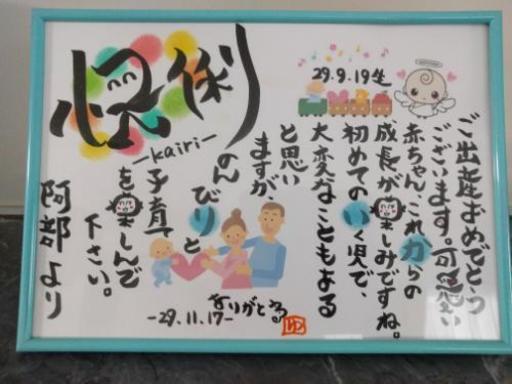 俐
-kairi-
29.9.19生
ご出産おめでとう
ございます。可愛い
赤ちゃん、これからの
成長が楽しみですね。
初めてのいく児で、
大変なこともある
と思い
ますが
のんびりと
子育て
を楽しんで
下さい。
阿部より
-29.11.17-